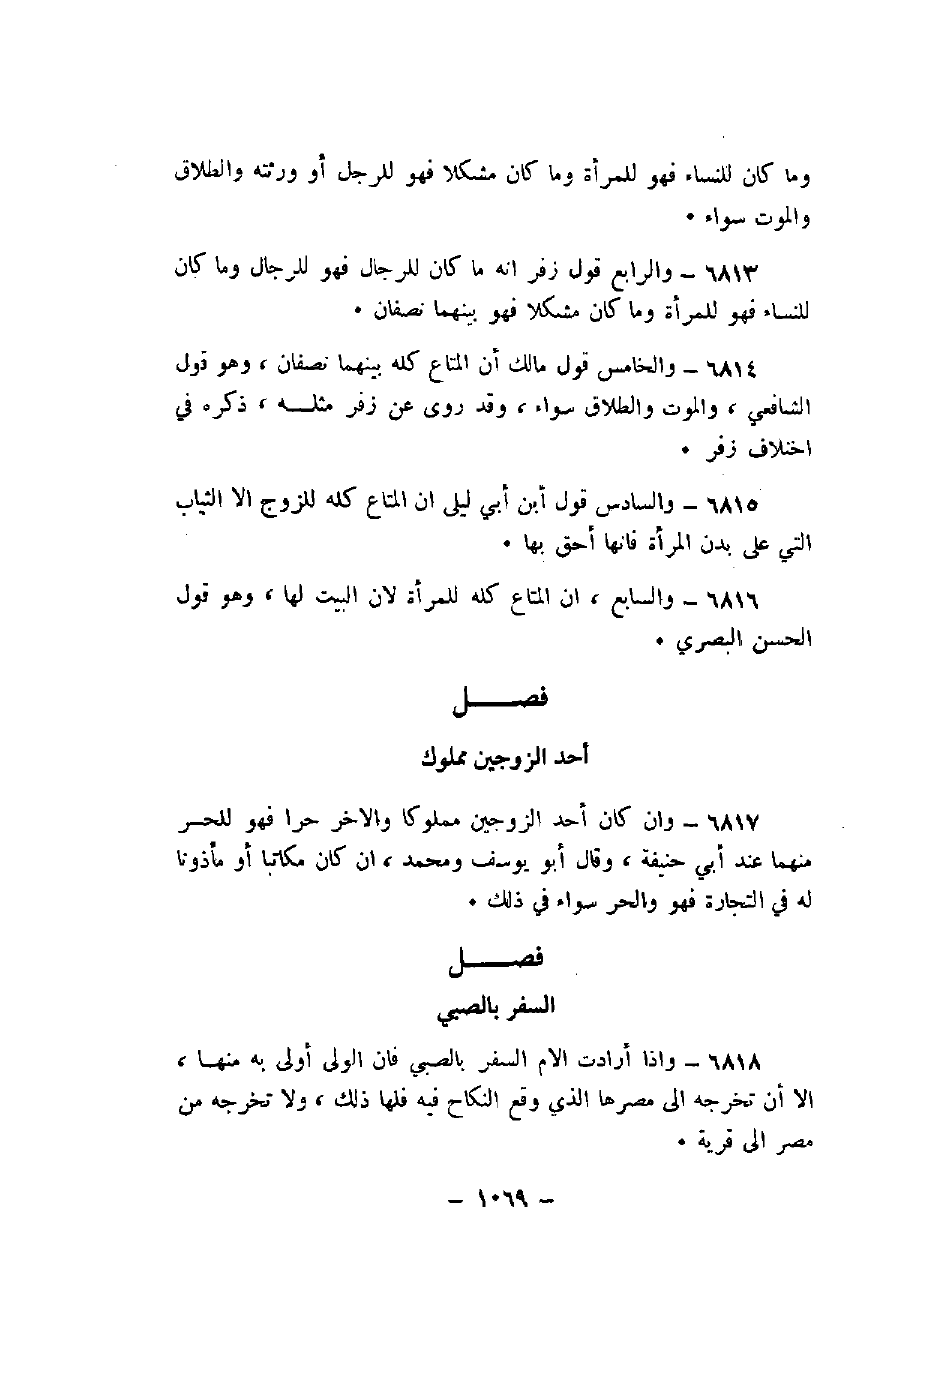 وما كان للنساء فهو للمرأة وما كان مشكلا فهو للرجل أو ورثته والطلاق
والموت سواء .
٦٨١٣ – والرابع قول زفر انه ما كان للرجال فهو للرجال وما كان
للنساء فهو للمرأة وما كان مشكلا فهو بينهما نصفان .
٦٨١٤ – والخامس قول مالك أن المتاع كله بينهما نصفان ، وهو قول
الشافعي ، والموت والطلاق سواء ، وقد روى عن زفر مثلـــه ، ذكره في
اختلاف زفر .
٦٨١٥ – والسادس قول أبن أبي ليلى ان المتاع كله للزوج الا الثياب
التي على بدن المرأة فانها أحق بها .
٦٨١٦ – والسابع ، ان المتاع كله للمرأة لان البيت لها ، وهو قول
الحسن البصري .
فصـــــل
أحد الزوجين مملوك
٦٨١٧ – وان كان أحد الزوجين مملوكا والاخر حرا فهو للحـــر
منهما عند أبي حنيفة ، وقال أبو يوسف ومحمد ، ان كان مكاتبا أو مأذونا
له في التجارة فهو والحر سواء في ذلك .
فصـــــل
السفر بالصبي
٦٨١٨ – واذا أرادت الام السفر بالصبي فان الولى أولى به منهـــا ،
الا أن تخرجه الى مصرها الذي وقع النكاح فيه فلها ذلك ، ولا تخرجه من
مصر الى قرية .
– ١٠٦٩ –